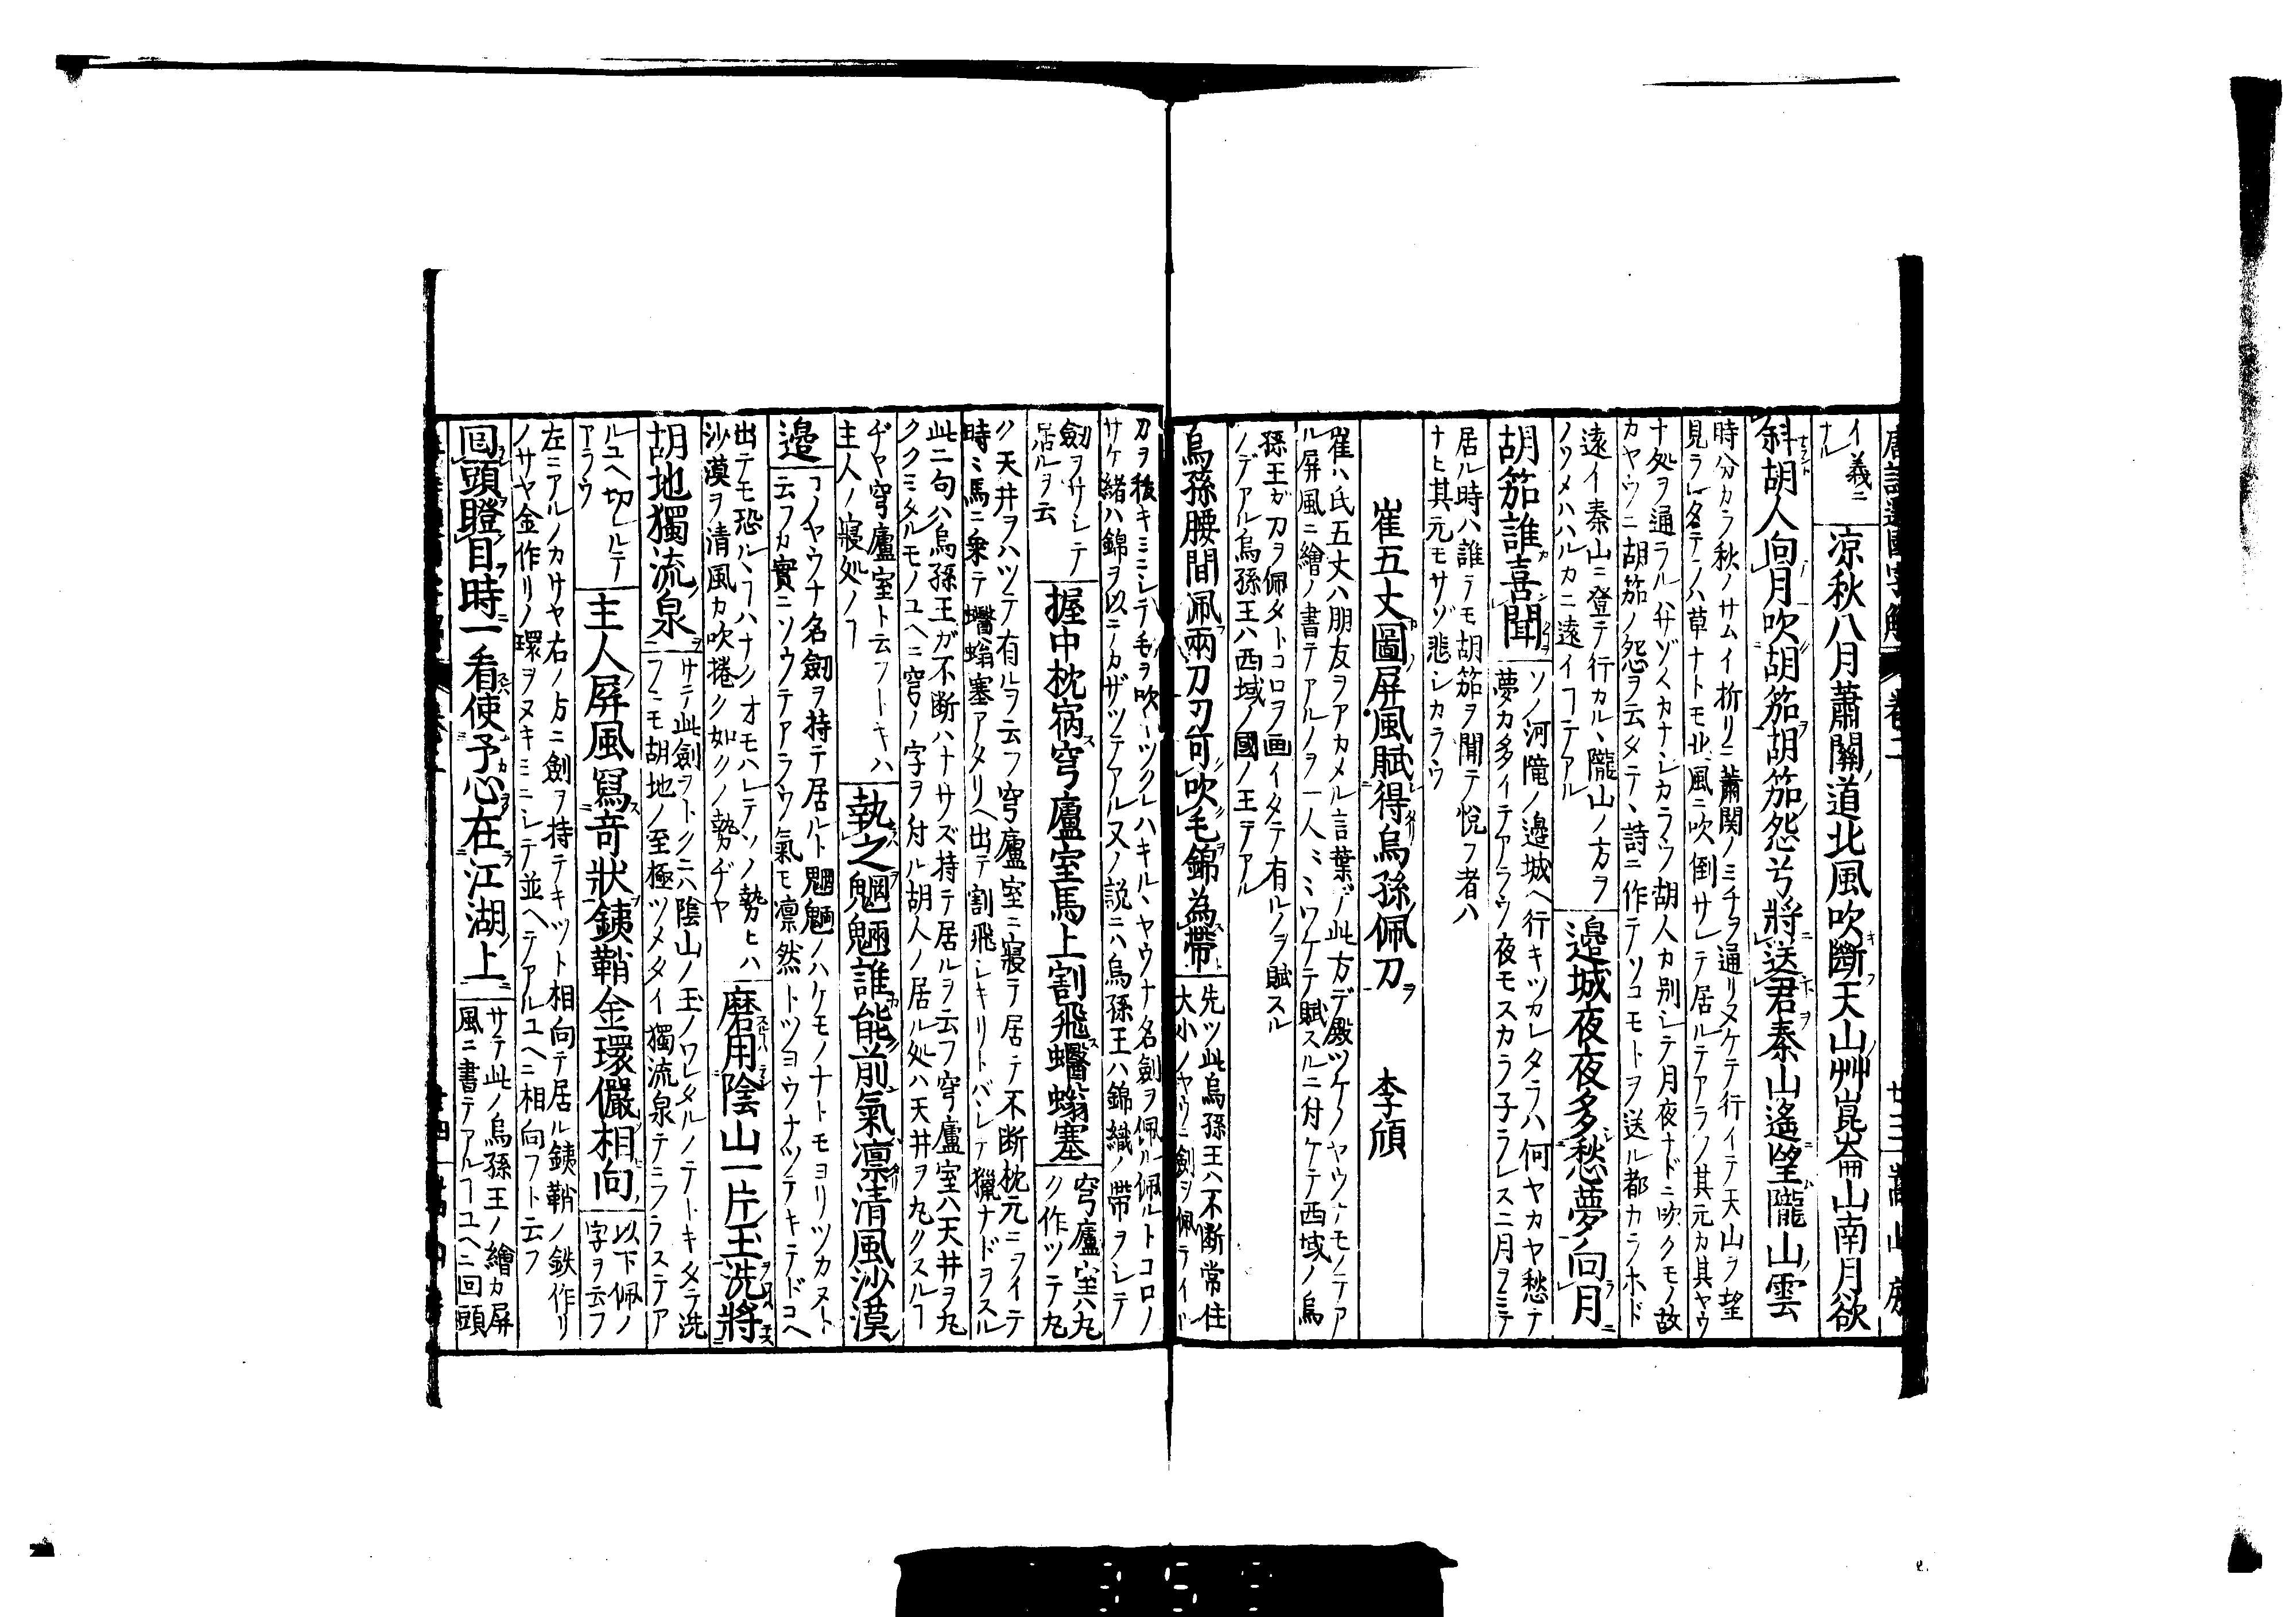 唐詩選國字解 卷二 廿三 嵩山房
イ義ニ
ナル
凉秋八月蕭關道北風吹斷天山艸崑崙山南月欲
斜胡人向月吹胡笳胡笳怨兮將送君秦山遙望隴山雲
時分カラ秋ノサムイ折リニ蕭関ノミチヲ通リヌケテ行イテ天山ヲ望
見ラレタテハ草ナトモ北風ニ吹倒サレテ居ルテアラフ其元カ其ヤウ
ナ処ヲ通ラルヽハサゾイカナシカラウ胡人カ別レテ月夜ナドニ吹クモノ故
カヤウニ胡笳ノ怨ヲ云タテ、詩ニ作テソコモトヲ送ル都カラホド
遠イ秦山ニ登テ行カル、隴山ノ方ヲ
ノツメハハルカニ遠イヿテアル
邉城夜夜多愁夢向月
胡笳誰喜聞
ソノ河隴ノ邉城ヘ行キツカレタラハ何ヤカヤ愁テ
夢カ多イテアラウ夜モスカラ子ラレスニ月ヲミテ
居ル時ハ誰テモ胡笳ヲ聞テ悦フ者ハ
ナヒ其元モサゾ悲シカラウ
崔五丈圖屏風賦得烏孫佩刀 李頎
崔ハ氏五丈ハ朋友ヲアカメル言葉ゾ此方デ殿ツケノヤウナモノテア
ル屏風ニ繪ノ書テアルノヲ一人ミミワケテ賦スルニ付ケテ西域ノ烏
孫王ガ刀ヲ佩タトコロヲ画イタテ有ルノヲ賦スル
ノデアル烏孫王ハ西域ノ國ノ王テアル
烏孫腰間佩兩刀刃可吹毛錦為帶
先ツ此烏孫王ハ不断常住
大小ノヤウニ劍ヲ佩テイル
刀ヲ後キミニシテ毛ヲ吹ーツクレハキルヽヤウナ名劍ヲ佩ル佩ルトコロノ
サケ緒ハ錦ヲ以ニカザツテアル又ノ説ニハ烏孫王ハ錦織ノ帶ヲシテ
劒ヲサシテ
居ルヲ云
握中枕宿穹廬室馬上割飛䗿螉塞
穹廬室ハ丸
ク作ツテ丸
ク天井ヲハツテ有ルヲ云フ穹廬室ニ寢テ居テ不断枕元ニヲイテ
時ミ馬ニ乗テ䗿螉塞アタリヘ出テ割飛シキリトバシテ獵ナドヲスル
此二句ハ烏孫王ガ不断ハナサズ持テ居ルヲ云フ穹廬室ハ天井ヲ丸
ククミタルモノユヘニ穹ノ字ヲ付ル胡人ノ居ル処ハ天井ヲ丸クスルヿ
ヂヤ穹廬室ト云フトキハ
主人ノ寢処ノヿ
執之魍魎誰能前氣凛清風沙漠
邉
コノヤウナ名劒ヲ持テ居ルト魍魎ノハケモノナトモヨリツカヌト
云フカ實ニソウテアラウ氣モ凛然トツヨウナツテキテドコヘ
出テモ恐ルヽヿハナクオモハレテソノ勢ヒハ
沙漠ヲ清風カ吹捲ク如クノ勢ヂヤ
磨用陰山一片玉洗將
胡地獨流泉
サテ此劍ヲトクニハ陰山ノ玉ノワレタルノテトキタテ洗
フニモ胡地ノ至極ツメタイ獨流泉テニフラステア
ルユヘ切レルテ
アラウ
主人屏風寫竒狀銕鞘金環儼相向
以下佩ノ
字ヲ云フ
左ニアルノカサヤ右ノ方ニ劍ヲ持テキツト相向テ居ル銕鞘ノ鉄作リ
ノサヤ金作リノ環ヲヌキミニシテ並ヘテアルユヘニ相向フト云フ
囘頭瞪目時一看使予心在江湖上
サテ此ノ烏孫王ノ繪カ屏
風ニ書テアルヿユヘニ回頭